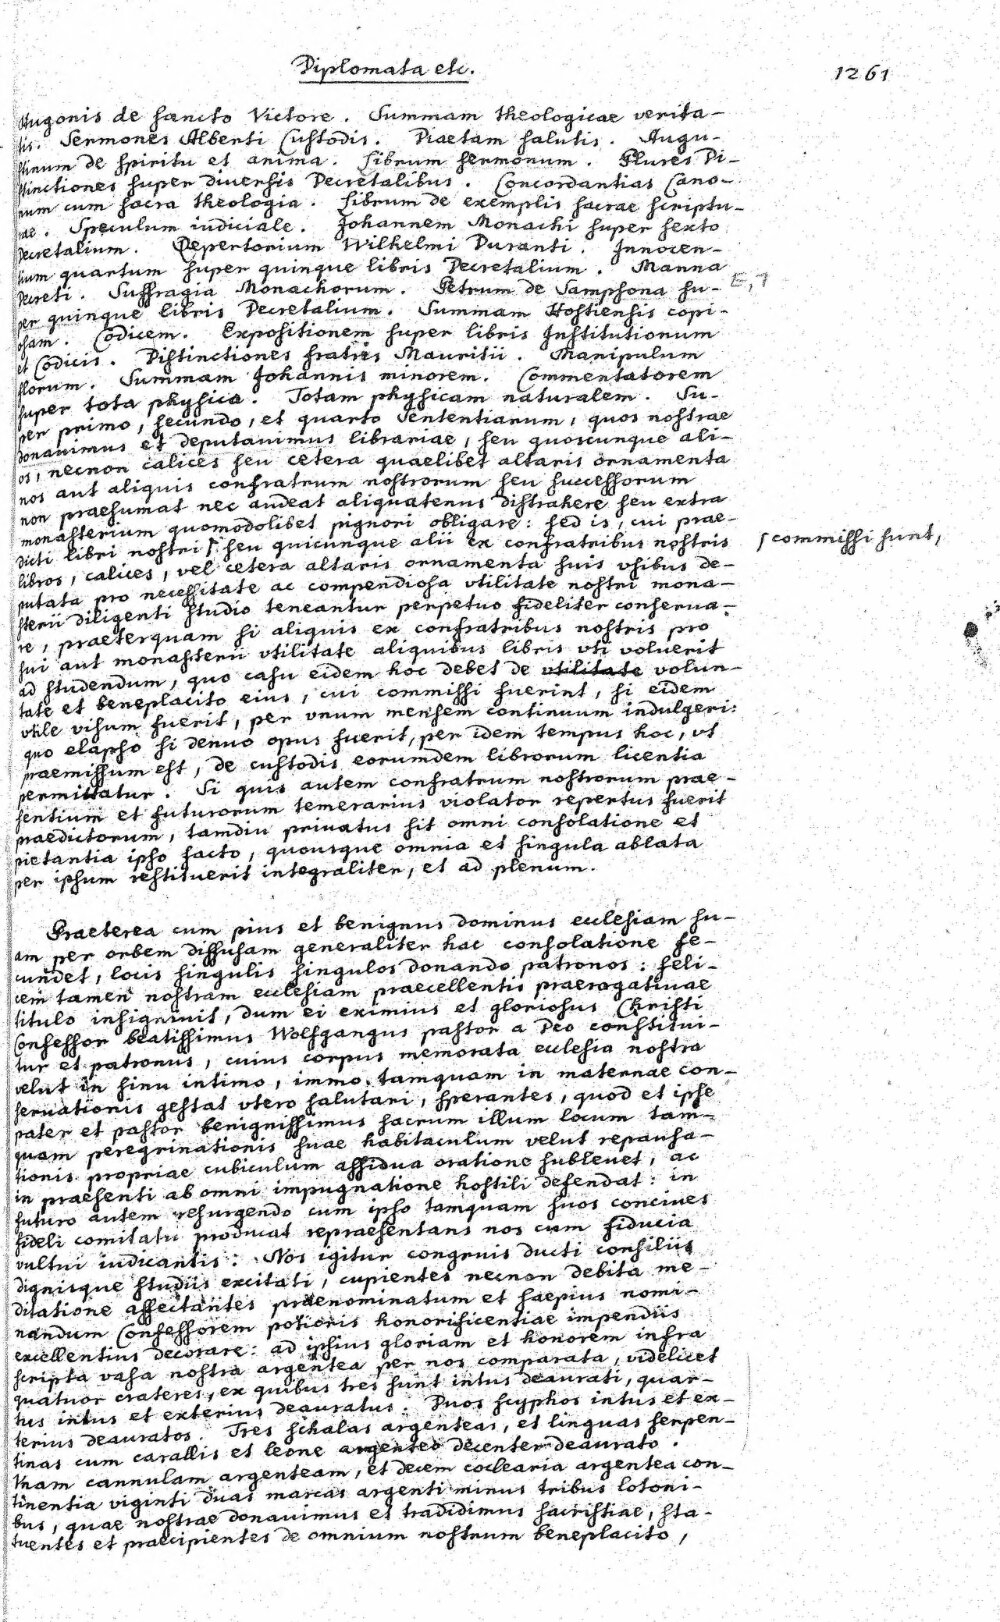 Diplomata etc.
1261
Hugonis de sancto Victore. Summam theologicae verita-
tis. Sermones Alberti Custodis. Diaetam salutis. Augu-
stinum de spiritu et anima. Librum sermonum. Plures Di-
stinctiones super diversis Decretalibus. Concordantias Cano-
num cum sacra theologia. Librum de exemplis sacrae scriptu-
rae. Speculum iudiciale. Johannem Monachi super sexto
Decretalium. Repertorium Wilhelmi Duranti. Innocen-
tium quartum super quinque libris Decretalium. Manna
Decreti. Suffragia Monachorum. Petrum de Samphona su-
per quinque libris Decretalium. Summam Hostiensis copi-
osam. Codicem. Expositionem super libris Institutionum
et Codicis. Distinctiones fratris Mauritii. Manipulum
florum. Summam Johannis minorem. Commentatorem
super tota physica. Totam physicam naturalem. Su-
per primo, secundo, et quarto Sententiarum, quos nostrae
donavimus et deputavimus librariae, seu quoscunque ali-
os, necnon calices seu cetera quaelibet altaris ornamenta
nos aut aliquis confratrum nostrorum seu successorum
non praesumat nec audeat aliquatenus distrahere seu extra
monasterium quomodolibet pignori obligare: sed is, cui prae-
dicti libri nostri ſ seu quicunque alii ex confratribus nostris
ſ commissi sunt,
libros, calices, vel cetera altaris ornamenta suis usibus de-
putata pro necessitate ac compendiosa vtilitate nostri mona-
sterii diligenti studio teneantur perpetuo fideliter conserua-
re, praeterquam si aliquis ex confratribus nostris pro
sui aut monasterii vtilitate aliquibus libris vti voluerit
ad studendum, quo casu eidem hoc debet de vtilitate volun-
tate et beneplacito eius, cui commissi fuerint, si eidem
vtile visum fuerit, per vnum mensem continuum indulgeri:
quo elapso si denuo opus fuerit, per idem tempus hoc, vt
praemissum est, de custodis eorumdem librorum licentia
permittatur. Si quis autem confratrum nostrorum prae-
sentium et futurorum temerarius violator repertus fuerit
praedictorum, tamdiu privatus sit omni consolatione et
pietantia ipso facto, quousque omnia et singula ablata
per ipsum restituerit integraliter, et ad plenum.
Praeterea cum pius et benignus dominus ecclesiam su-
am per orbem diffusam generaliter hac consolatione fe-
cundet, locis singulis singulos donando patronos: feli-
cem tamen nostram ecclesiam praecellentis praerogativae
titulo insignivit, dum ei eximius et gloriosus Christi
Confessor beatissimus Wolfgangus pastor a Deo constitui-
tur et patronus, cuius corpus memorata ecclesia nostra
velut in sinu intimo, immo tamquam in maternae con-
servationis gestat vtero salutari, sperantes, quod et ipse
pater et pastor benignissimus sacrum illum locum tam-
quam peregrinationis suae habitaculum velut repausa-
tionis propriae cubiculum assidua oratione sublevet, ac
in praesenti ab omni impugnatione hostili defendat: in
futuro autem resurgendo cum ipso tamquam suos concives
fideli comitatu producat repraesentans nos cum fiducia
vultui iudicantis. Nos igitur congruis ducti consiliis
dignisque studiis excitati, cupientes necnon debita me-
ditatione affectantes praenominatum et saepius nomi-
nandum Confessorem potioris honorificentiae impendiis
excellentius decorare: ad ipsius gloriam et honorem infra
scripta vasa nostra argentea per nos comparata, videlicet
quatuor crateres, ex quibus tres sunt intus deaurati, quar-
tus intus et exterius deauratus. Duos scyphos intus et ex-
terius deauratos. Tres schalas argenteas, et linguas serpen-
tinas cum carallis et leone argenteo decenter deaurato.
Vnam cannulam argenteam, et decem coclearia argentea con-
tinentia viginti duas marcas argenti minus tribus lotoni-
bus, quae nostrae donavimus et tradidimus sacristiae, sta-
tuentes et praecipientes de omnium nostrum beneplacito,